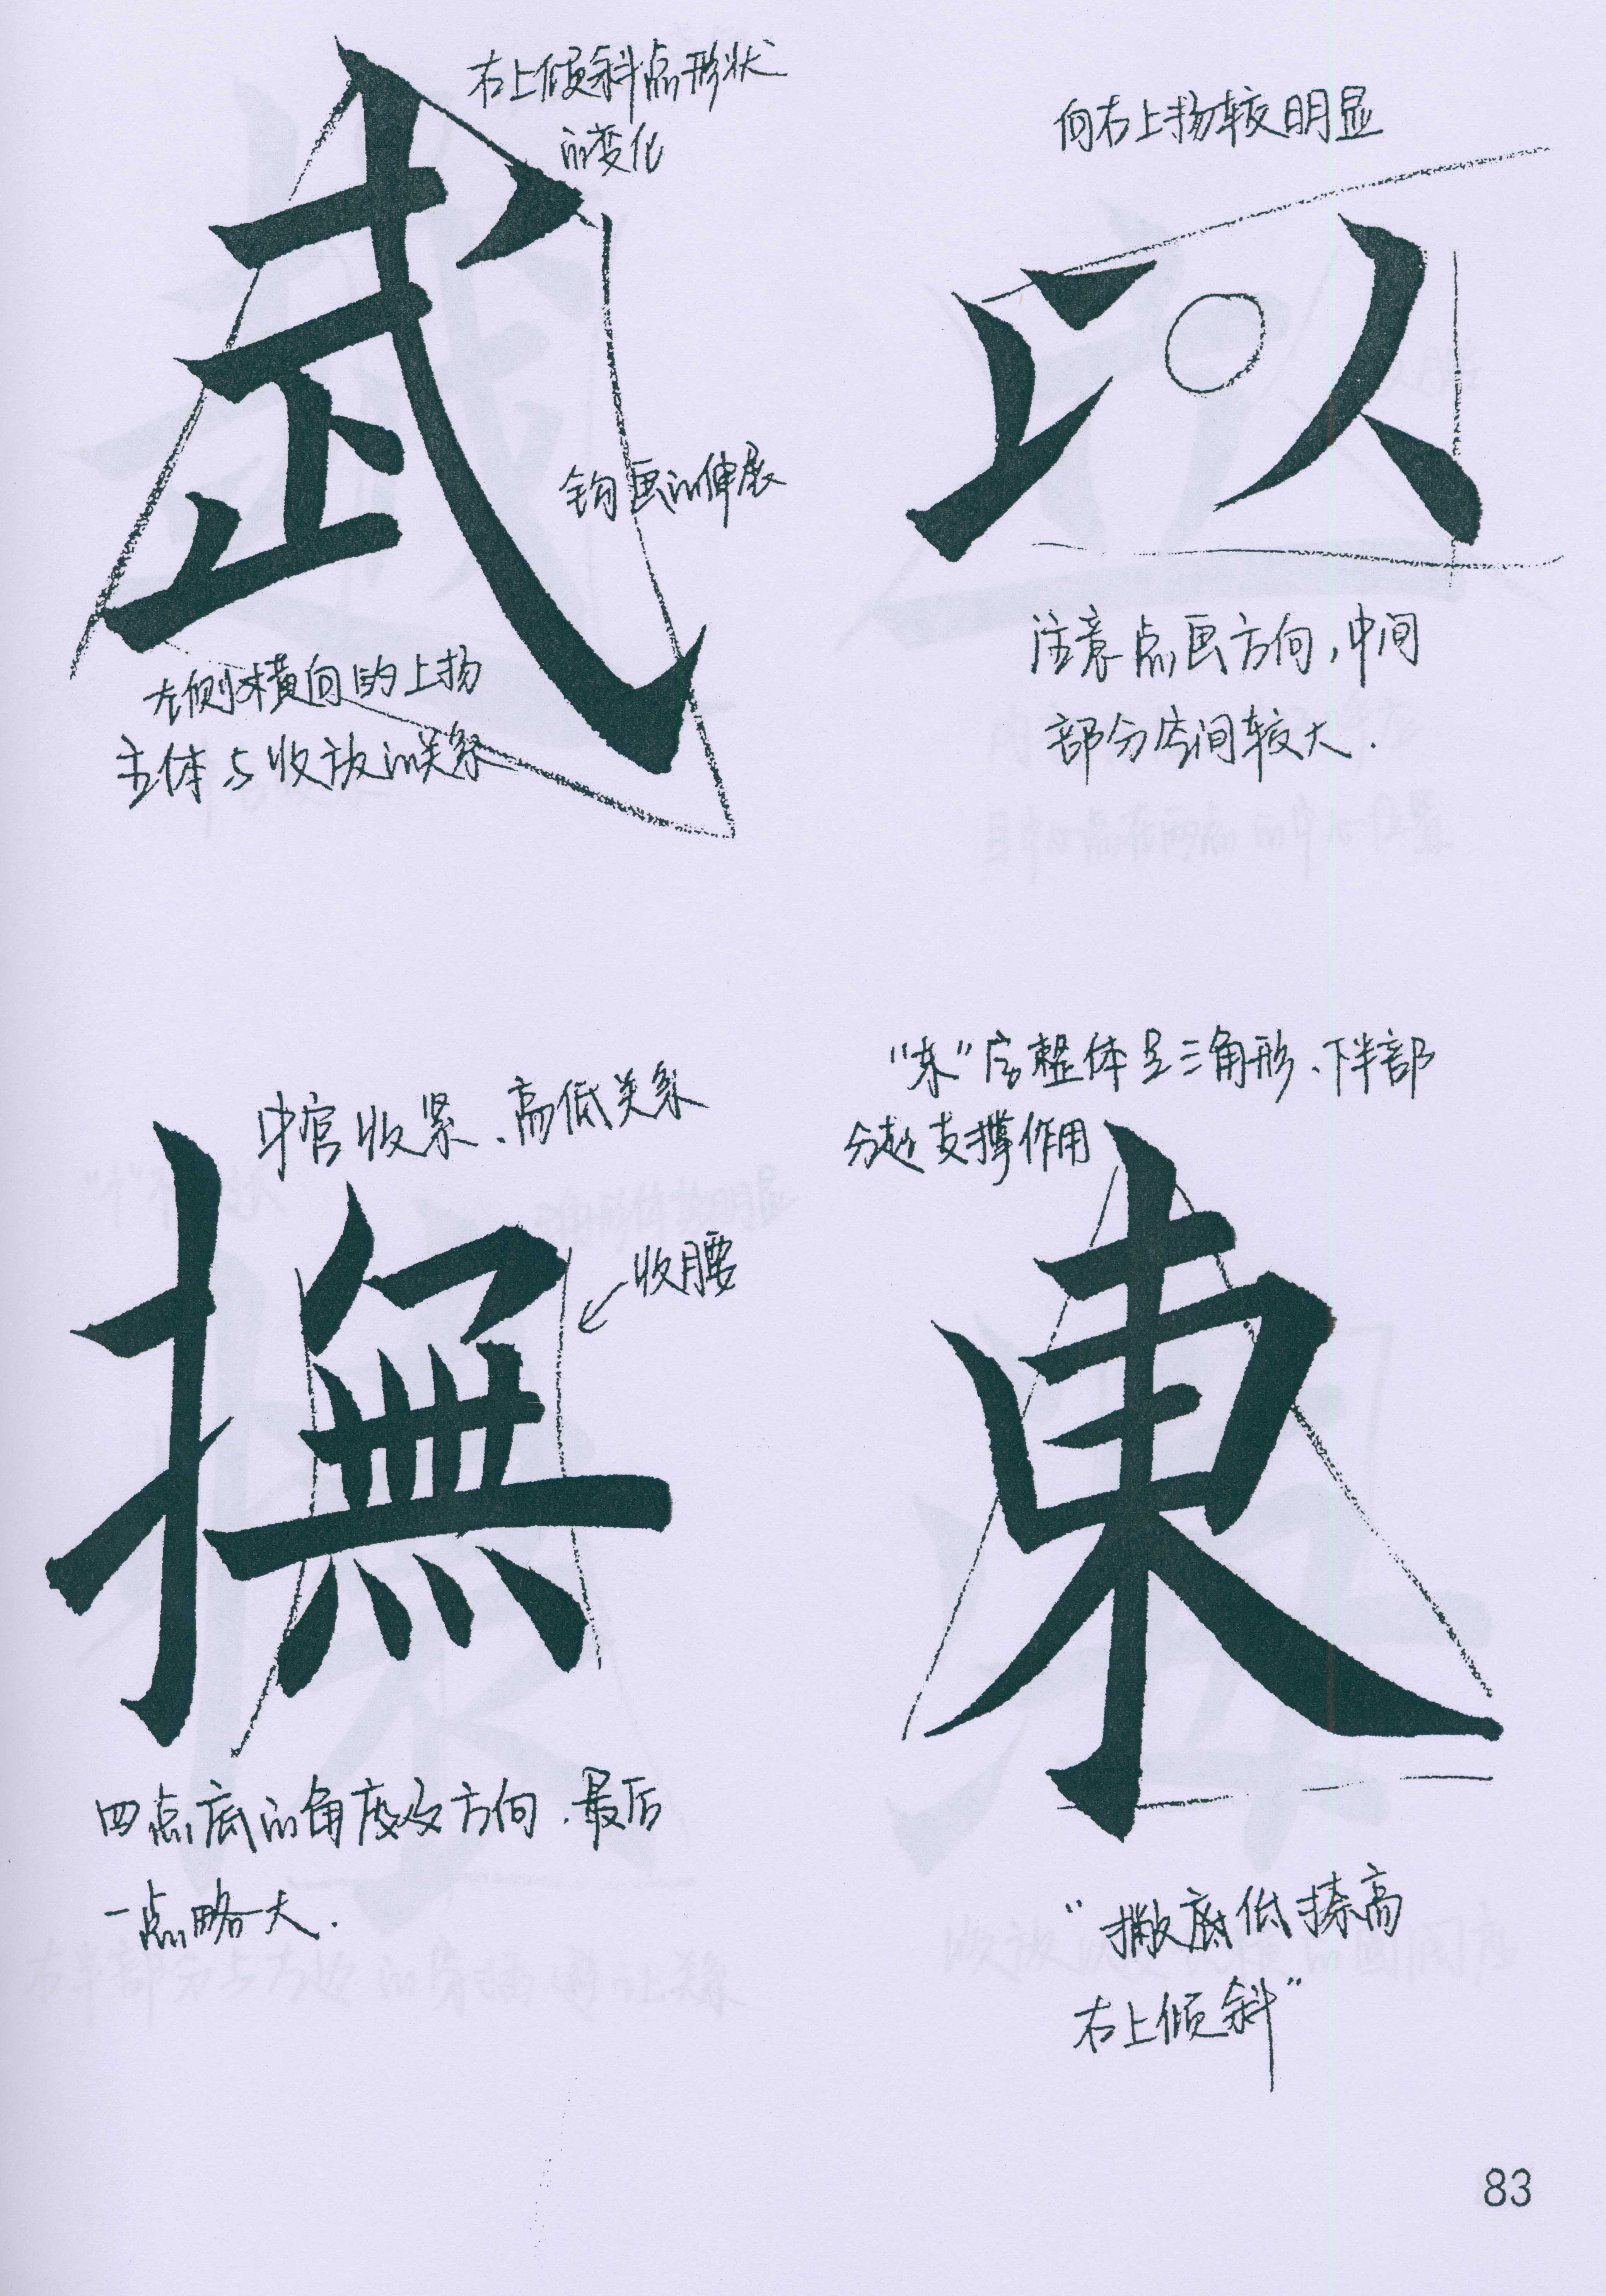 武
右上倾斜点形状
的变化
钩画的伸展
左侧横向的上扬
主体与收放的关系
向右上扬较明显
以
注意点画方向，中间
部分空间较大．
中宫收紧、高低关系
撫
收腰
四点底的角度及方向．最后
一点略大．
"東"字整体呈三角形、下半部
分起支撑作用
東
"撇底低捺高
右上倾斜"
83